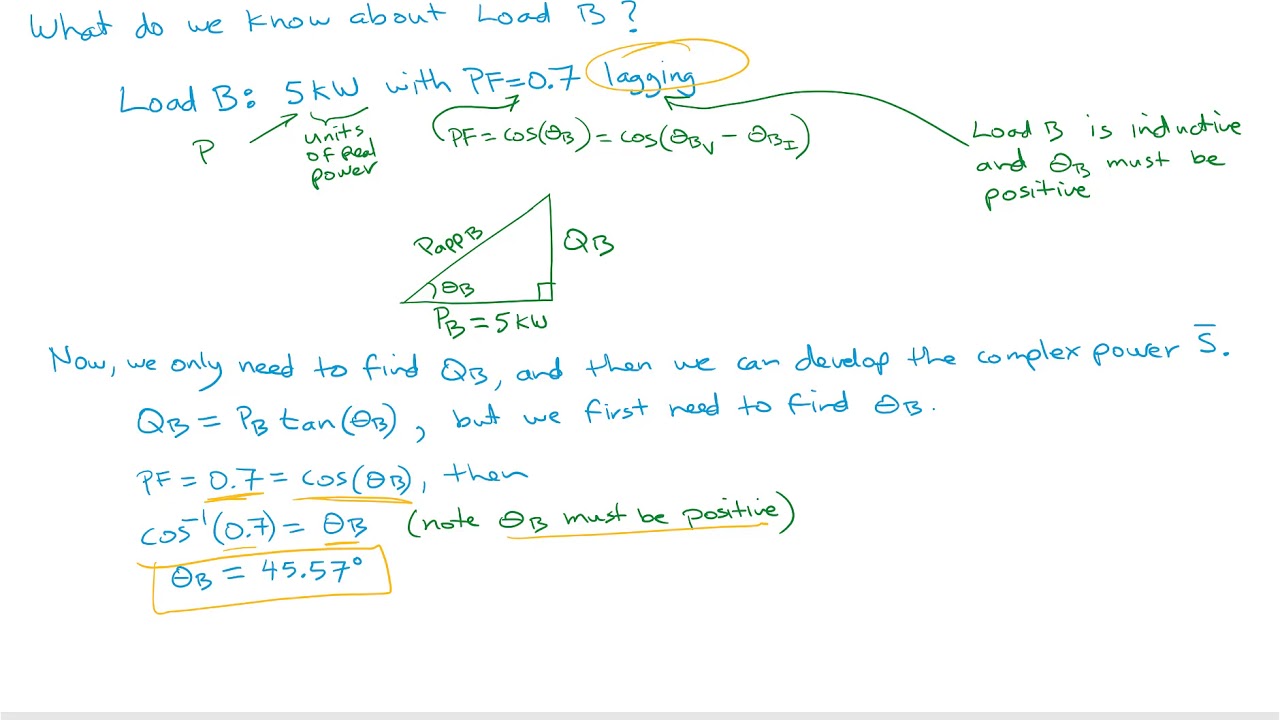 What do we know about Load B?
Load B: 5kW with PF=0.7 lagging
P
units
of real
power
PF = cos(θB) = cos(θBV − θBI)
Load B is inductive
and θB must be
positive
PappB
QB
θB
PB = 5kW
Now, we only need to find QB, and then we can develop the complex power S̅.
QB = PB tan(θB), but we first need to find θB.
PF = 0.7 = cos(θB), then
cos⁻¹(0.7) = θB (note θB must be positive)
θB = 45.57°